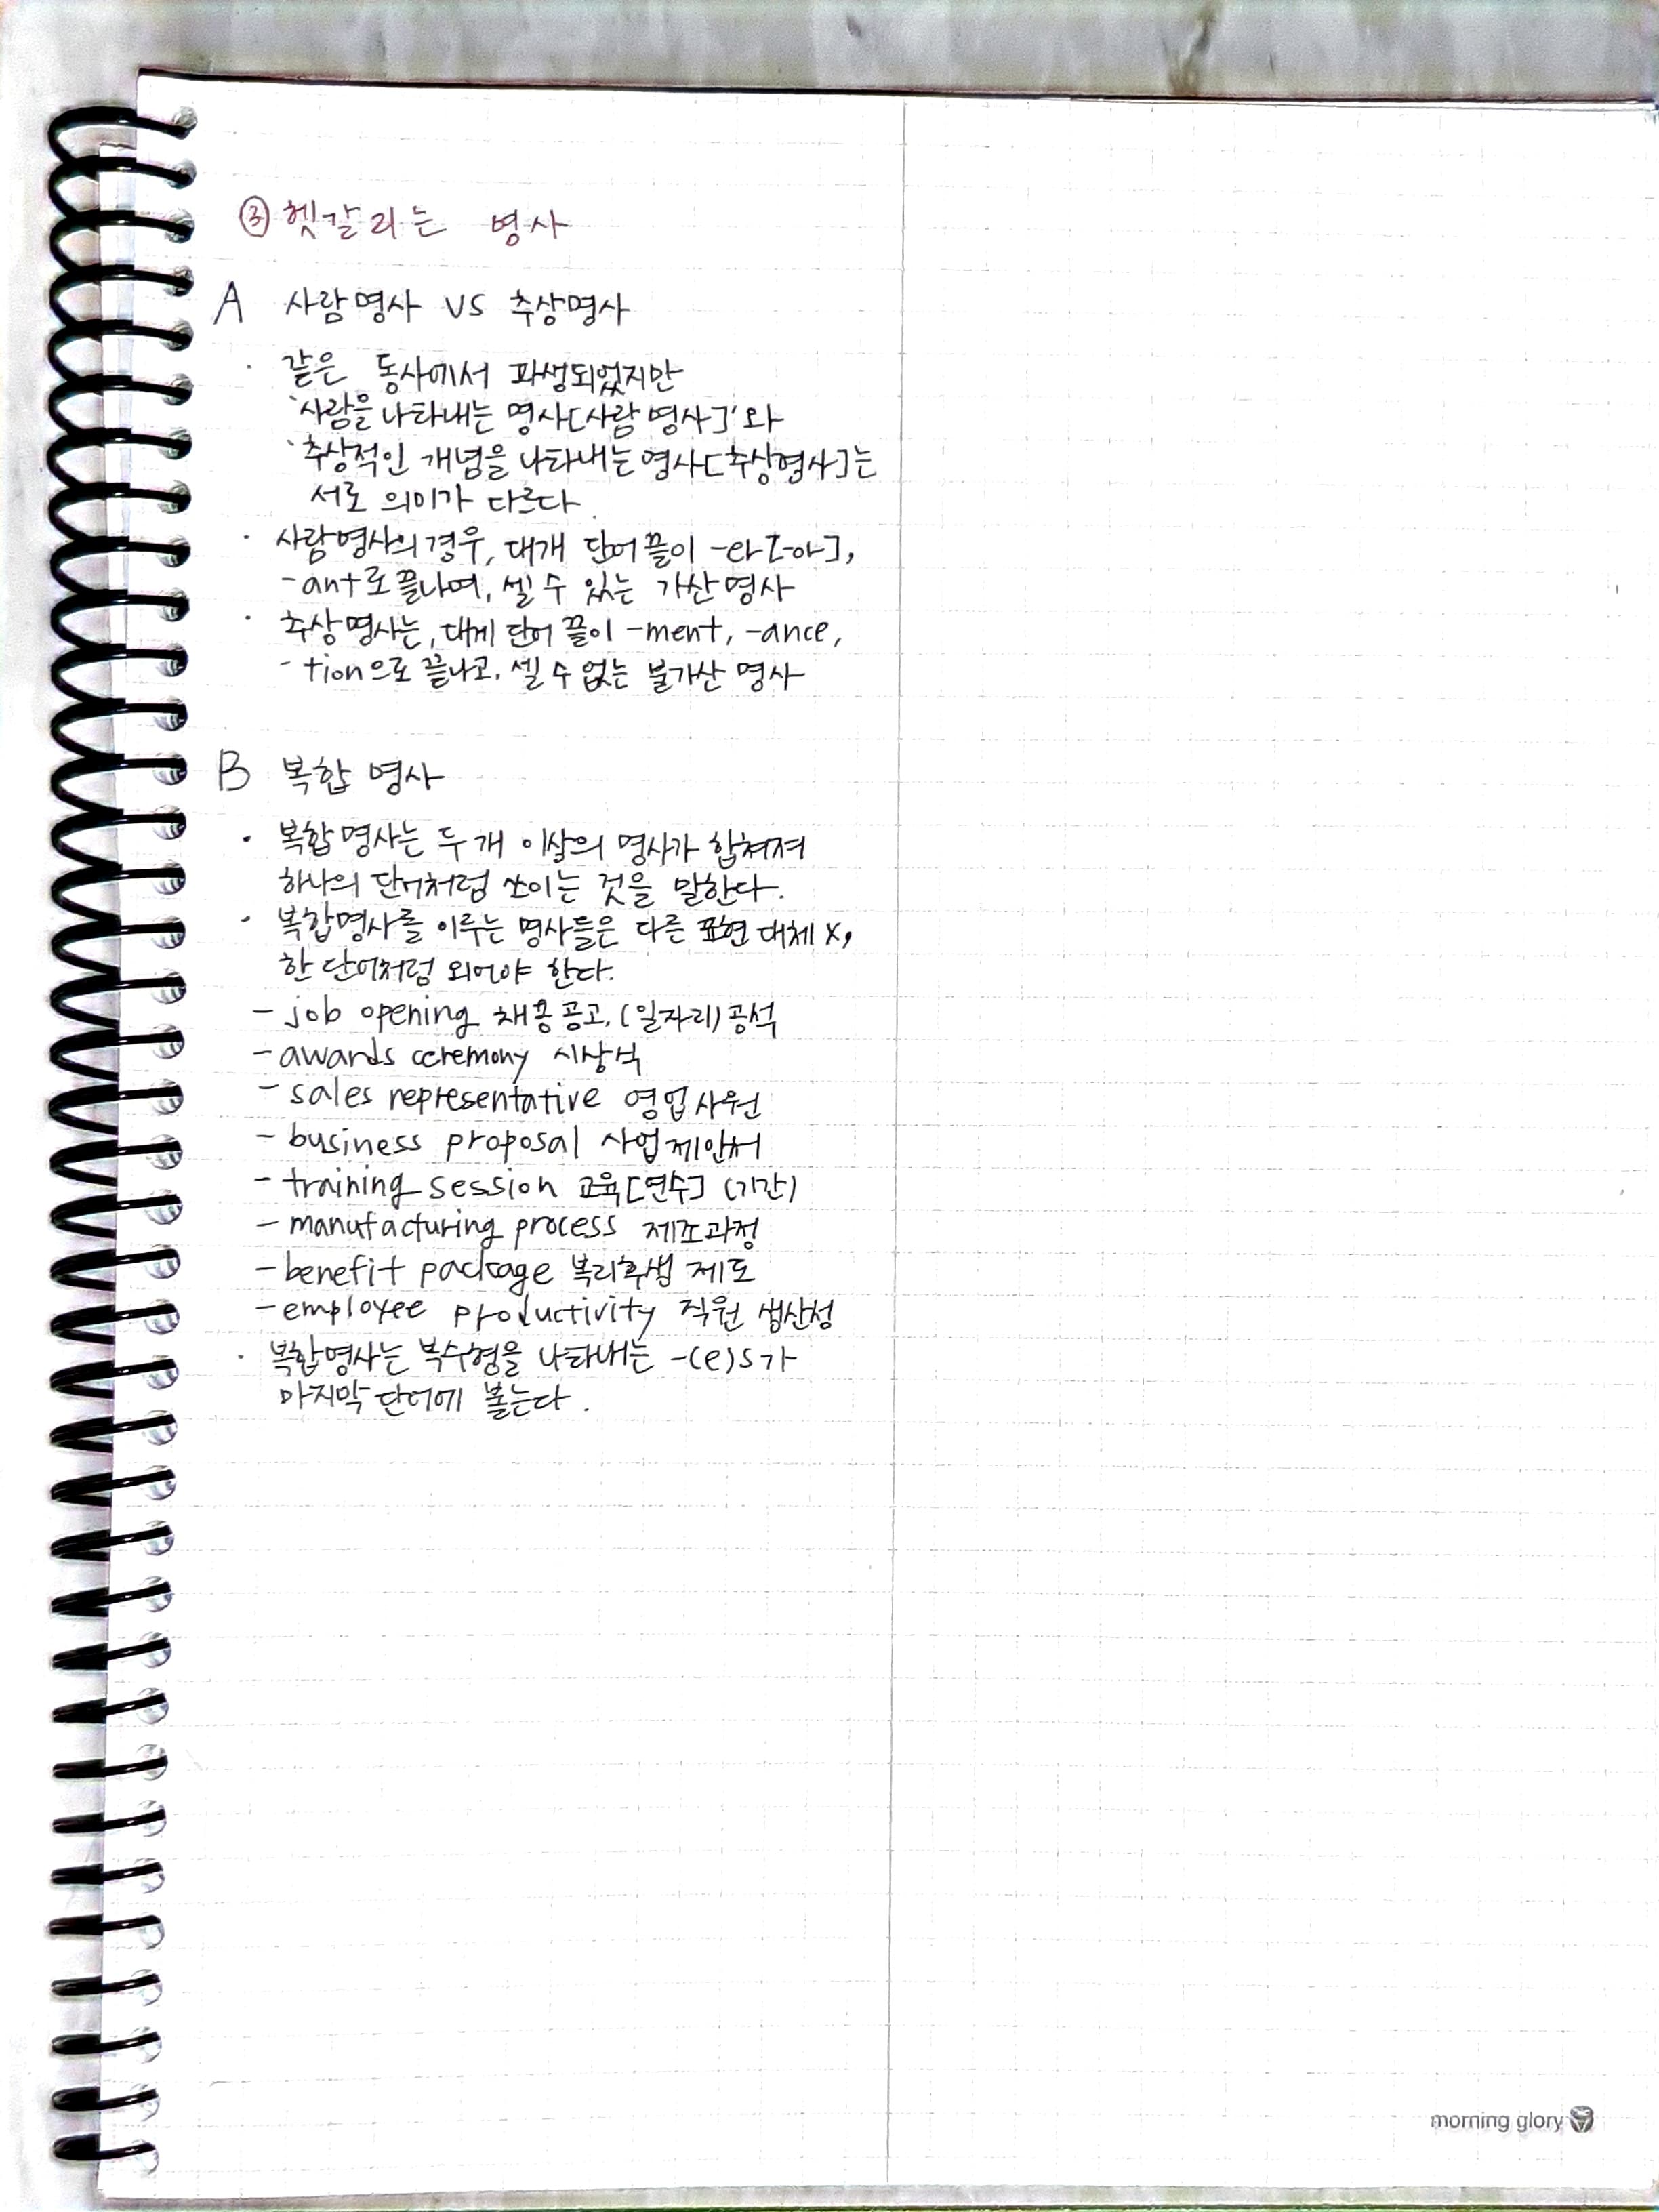 ③ 헷갈리는 명사
A 사람명사 VS 추상명사
· 같은 동사에서 파생되었지만
'사람을 나타내는 명사[사람명사]'와
'추상적인 개념을 나타내는 명사[추상명사]는
서로 의미가 다르다.
· 사람명사의 경우, 대개 단어 끝이 -er[-or],
-ant로 끝나며, 셀 수 있는 가산명사
· 추상명사는, 대게 단어 끝이 -ment, -ance,
-tion으로 끝나고, 셀 수 없는 불가산 명사
B 복합 명사
· 복합명사는 두 개 이상의 명사가 합쳐져
하나의 단어처럼 쓰이는 것을 말한다.
· 복합명사를 이루는 명사들은 다른 표현 대체 X,
한 단어처럼 외어야 한다.
- job opening 채용공고, (일자리)공석
- awards ceremony 시상식
- sales representative 영업사원
- business proposal 사업제안서
- training session 교육[연수] (기간)
- manufacturing process 제조과정
- benefit package 복리후생 제도
- employee productivity 직원 생산성
· 복합명사는 복수형을 나타내는 -(e)s가
마지막 단어에 붙는다.
morning glory